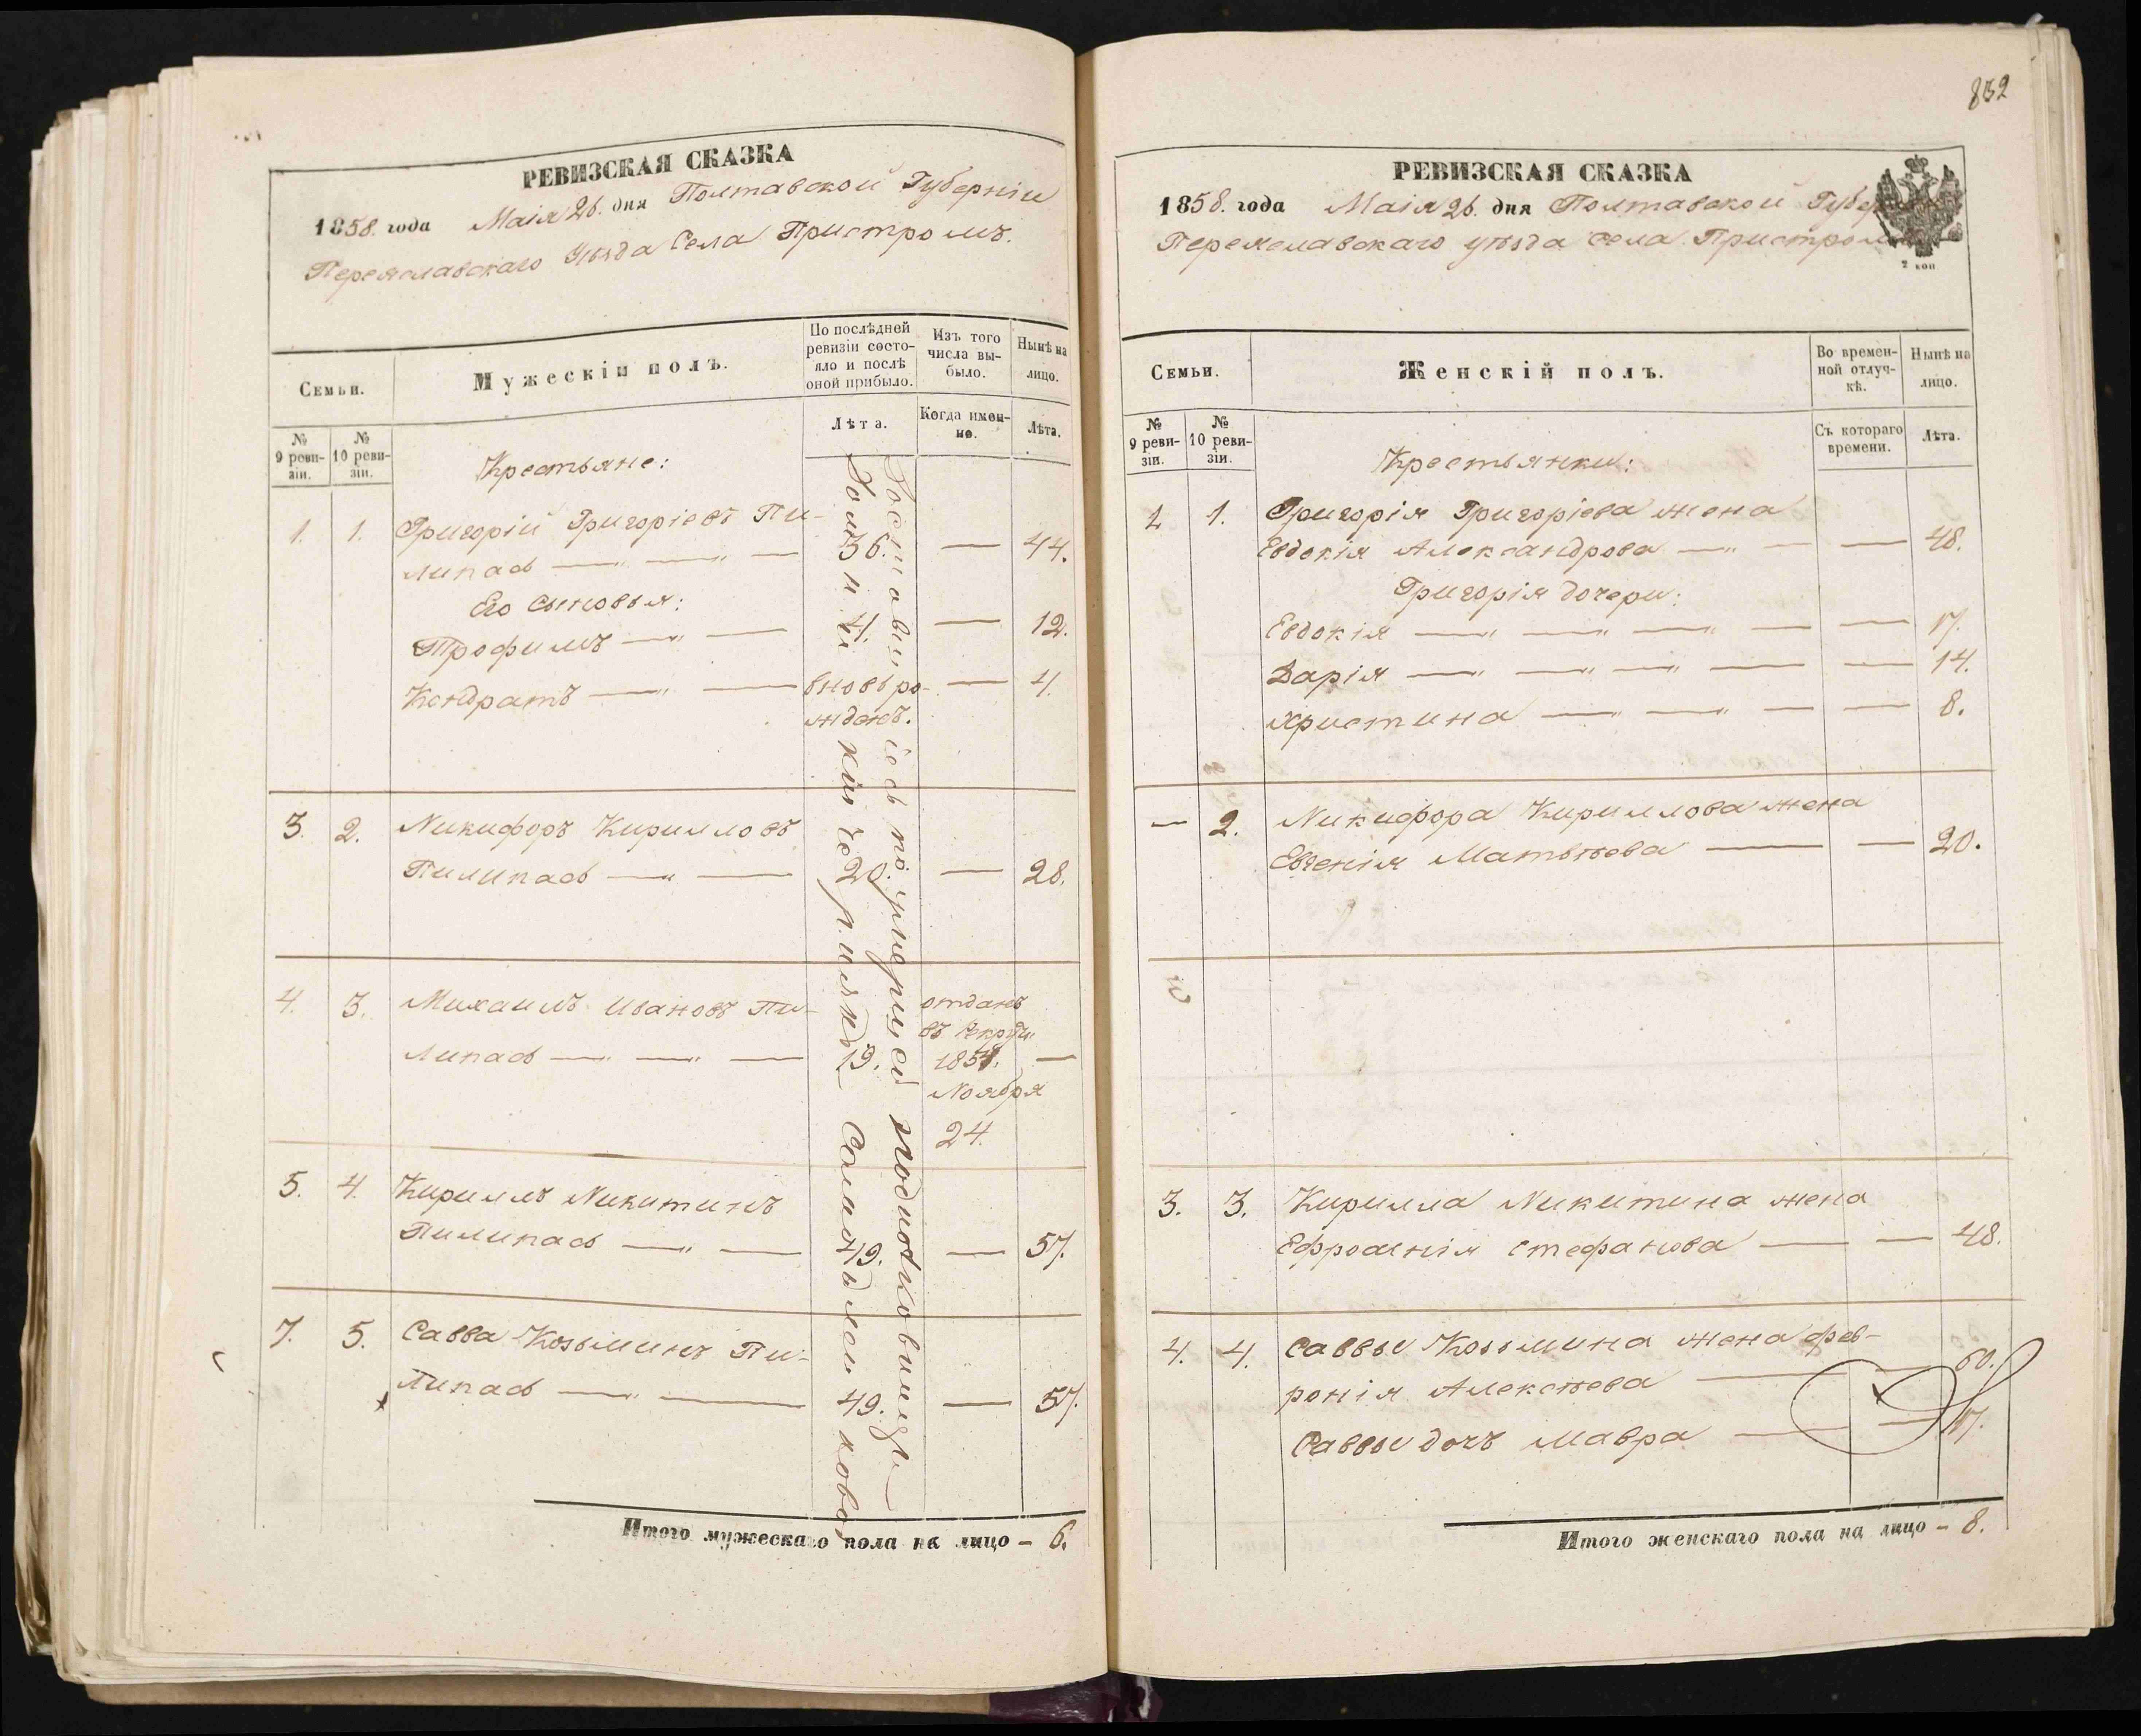 РЕВИЗСКАЯ СКАЗКА
1858. года Маія 26. дня Полтавской Губерніи
Переяславскаго Уѣзда Села Пристромъ.
Семьи.
Мужескій полъ.
По послѣдней ревизіи состо-
яло и послѣ
оной прибыло.
Изъ того
числа вы-
было.
Нынѣ на
лицо.
№
9 реви-
зіи.
№
10 реви-
зіи.
Лѣта.
Когда имен-
но.
Лѣта.
Крестьяне:
1. 1. Григорій Григоріевъ Пи-
липась — " — " — 36. — 44.
Его сыновья:
Трофимъ — " — 4. — 12.
Кондратъ — " — вновь ро- — 4.
жденъ.
3. 2. Никифоръ Кирилловъ
Пилипась — " — 20. — 28.
4. 3. Михаилъ Ивановъ Пи-
липась — " — " — 19. —
отданъ
въ
1854.
Ноября
24.
5. 4. Кириллъ Никитинъ
Пилипась — " — 49. — 57.
7. 5. Савва Козьминъ Пи-
липась — " — 49. — 57.
Итого мужескаго пола на лицо – 6.
832
РЕВИЗСКАЯ СКАЗКА
1858. года Маія 26. дня Полтавской
Переяславскаго уѣзда села
2 коп
Семьи.
Женскій полъ.
Во времен-
ной отлуч-
кѣ.
Нынѣ на
лицо.
№
9 реви-
зіи.
№
10 реви-
зіи.
Съ котораго
времени.
Лѣта.
Крестьянки:
1 1. Григорія Григоріева жена
Евдокія Александрова — " — — 48.
Григорія дочери:
Евдокія — " — " — " — — 17.
Дарія — " — " — " — — 14.
Христина — " — " — — 8.
— 2. Никифора Кириллова жена
Евгенія Матвѣева — — 20.
3. 3. Кирилла Никитина жена
Ефросинія Стефанова — — 48.
4. 4. Саввы Козьмина жена Фев-
ронія Алексѣева — 60.
Саввы дочь Мавра — — 17.
Итого женскаго пола на лицо – 8.